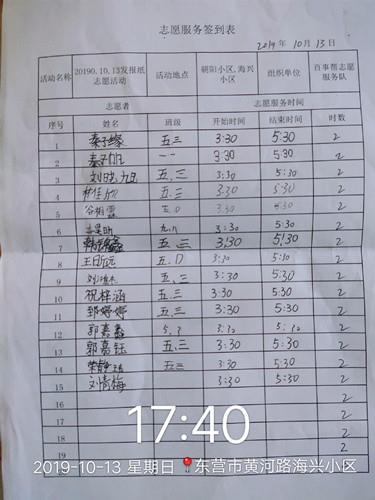 志愿服务签到表
2019年10月13日
活动名称 20190.10.13发报纸志愿活动 活动地点 朝阳小区,海兴小区 组织单位 百事帮志愿服务队
志愿者 志愿服务时间
序号 姓名 班级 开始时间 结束时间 时数
1 五.三 3:30 5:30 2
2 一一 3:30 5:30 2
3 五.三 3:30 5:30 2
4 五.三 3:30 5:30 2
5 3:30 5:30 2
6 3:30 5:30 2
7 五.三 3:30 5:30 2
8 3:30 5:30 2
9 五.三 3:30 5:30 2
10 祝梓涵 五.三 3:30 5:30 2
11 郅婷婷 五.三 3:30 5:30 2
12 郭嘉鑫 5.3 3:30 5:30 2
13 郭嘉钰 五.三 3:30 5:30 2
14 五.三 3:30 5:30 2
15 刘清梅 3:30 5:30 2
16 2
17 2
18 2
19 2
17:40
2019-10-13 星期日 东营市黄河路海兴小区